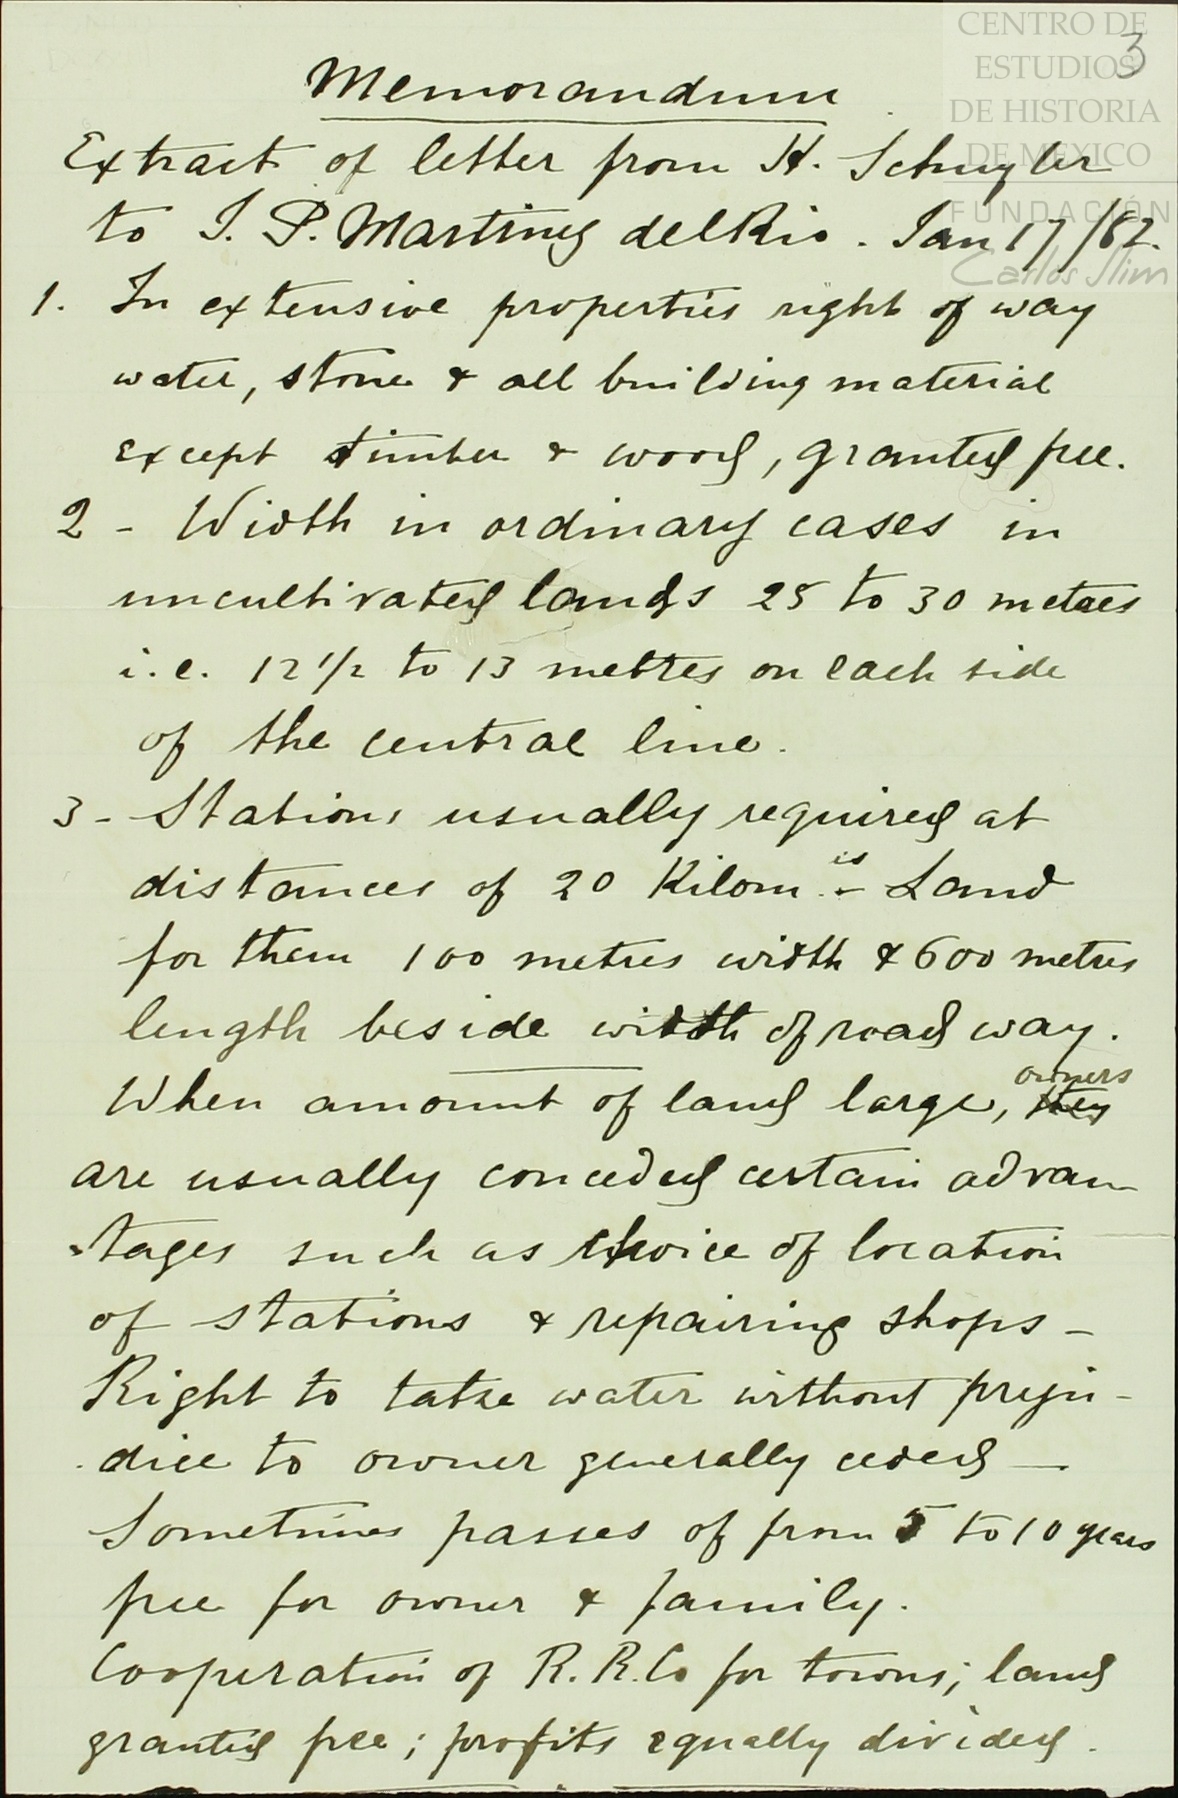 CENTRO DE
ESTUDIOS
DE HISTORIA
DE MEXICO
FUNDACIÓN
Carlos Slim
3
Memorandum
Extract of letter from H. Schuyler
to J. P. Martinez del Rio. Jan 17/82.
1. In extensive properties right of way
water, stone & all building material
except timber & wood, granted free.
2 - Width in ordinary cases in
uncultivated lands 25 to 30 metres
i.e. 12 1/2 to 13 metres on each side
of the central line.
3 - Stations usually required at
distances of 20 Kilom.es - Land
for them 100 metres width & 600 metres
length beside width of road way.
When amount of land large, they owners
are usually conceded certain advan-
tages such as choice of location
of stations & repairing shops -
Right to take water without preju-
dice to owner generally ceded -
Sometimes passes of from 5 to 10 years
free for owner & family.
Cooperation of R. R. Co for towns; land
granted free; profits equally divided.